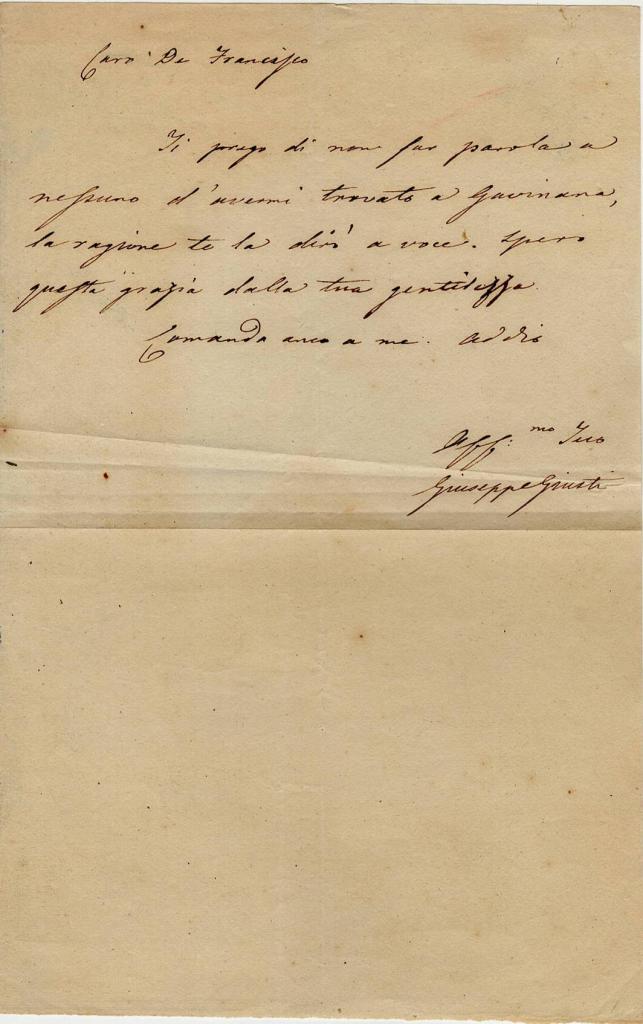 Caro De Francisco
Ti prego di non far parola a
nessuno d'avermi trovato a Gavinana,
la ragione te la dirò a voce. Spero
questa grazia dalla tua gentilezza.
Comanda anco a me. Addio
Aff:mo Tuo
Giuseppe Giusti